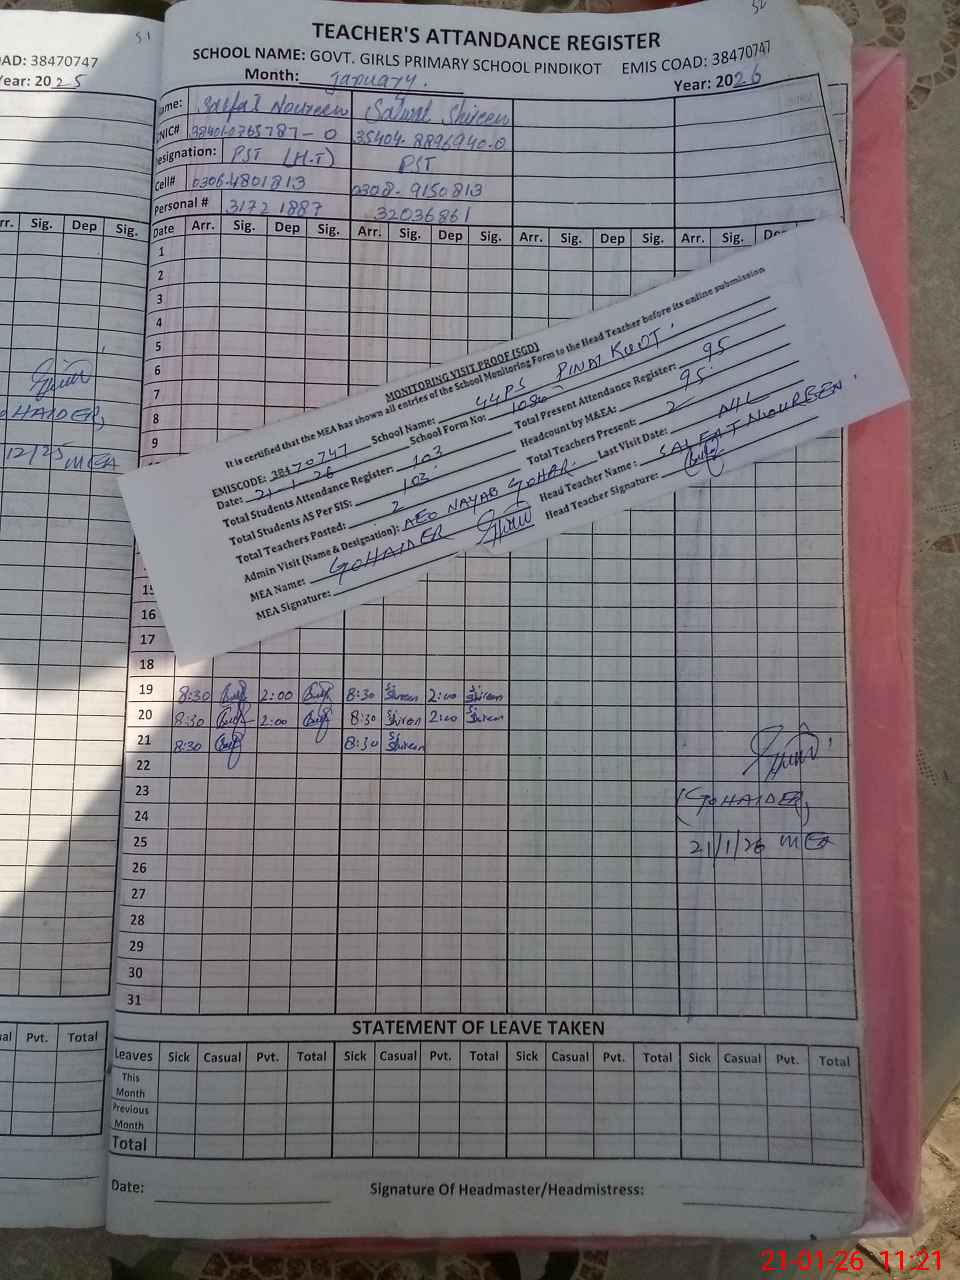 51
OAD: 38470747
Year: 2025
52
TEACHER'S ATTANDANCE REGISTER
SCHOOL NAME: GOVT. GIRLS PRIMARY SCHOOL PINDIKOT EMIS COAD: 38470747
Month: January. Year: 2026
Name: Saifat Noureen Salwat Shireen
CNIC#
Designation: PST (H.T) PST
Cell# 0306.4801813 0308.9150813
Personal # 31721887 32036861
Date Arr. Sig. Dep Sig. Arr. Sig. Dep Sig. Arr. Sig. Dep Sig. Arr. Sig. Dep
rr. Sig. Dep Sig.
1
2
3
4
5
6
7
8
9
HAIDER
12/25 MEA
MONITORING VISIT PROOF (SGD)
It is certified that the MEA has shown all entries of the School Monitoring Form to the Head Teacher before its online submission
EMISCODE: 38470747 School Name: GGPS PINDI KOOT
Date: 21-1-26 School Form No:
Total Students Attendance Register: 103 Total Present Attendance Register: 95
Total Students AS Per SIS: 103 Headcount by M&EA: 95
Total Teachers Posted: 2 Total Teachers Present: 2
Admin Visit (Name & Designation): AEO NAYAB GOHAR Last Visit Date: NIL
MEA Name: GOHAIDER Head Teacher Name: SAIFAT NOUREEN
MEA Signature: Head Teacher Signature:
15
16
17
18
19 8:30 2:00 8:30 Shireen 2:00 Shireen
20 8:30 2:00 8:30 Shireen 2:00 Shireen
21 8:30 8:30 Shireen
22
23
(GOHAIDER)
24
25 21/1/26 MEA
26
27
28
29
30
31
STATEMENT OF LEAVE TAKEN
al Pvt. Total
Leaves Sick Casual Pvt. Total Sick Casual Pvt. Total Sick Casual Pvt. Total Sick Casual Pvt. Total
This
Month
Previous
Month
Total
Date: Signature Of Headmaster/Headmistress:
21-01-26 11:21